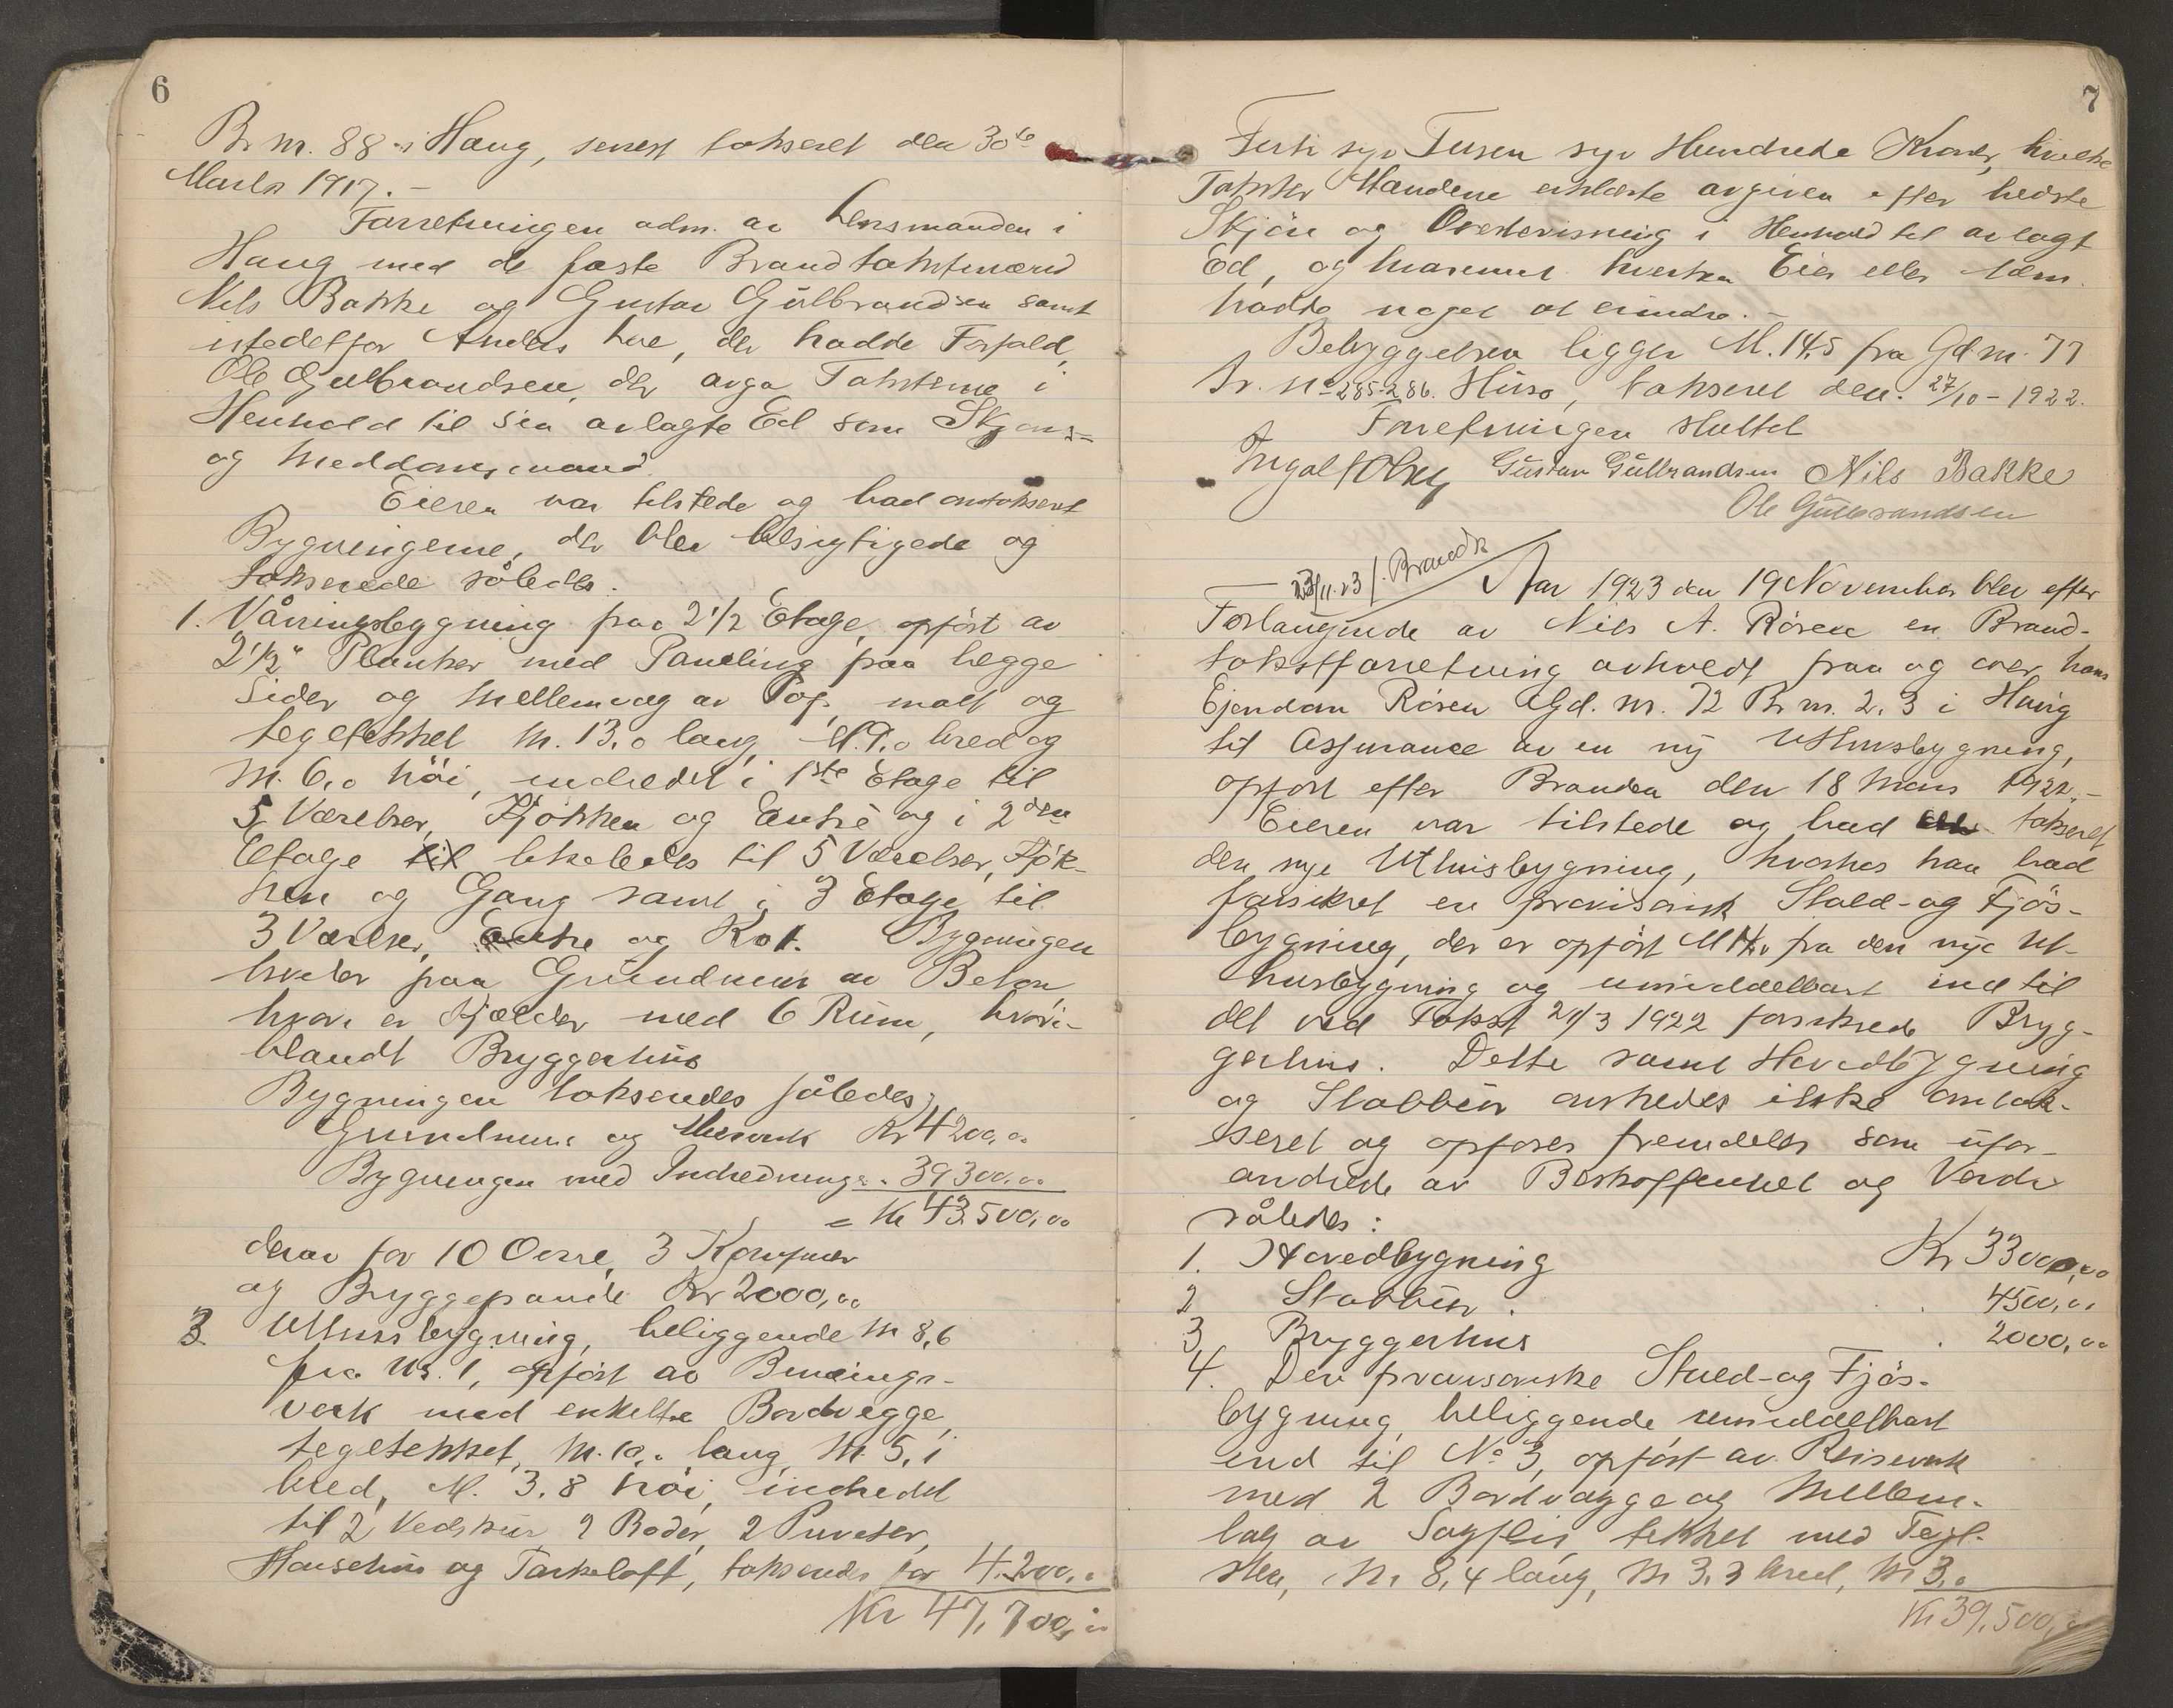 6
Br. nr. 88 i Haug, senest takseret den 30te
Marts 1917. —
Forretningen adm. av Lensmanden i
Haug med de faste Brandtakstmænd
Nils Bakke og Gustav Gülbrandsen samt
istedetfor Anders , der hadde Forfald,
Ole Gulbrandsen, der avga Taksterne i
Henhold til sin avlagte Ed som Skjøns-
og Meddomsmand.
Eieren var tilstede og bad omtakseret
Bygningerne, der blev besigtigede og
takserede således:
1. Våningsbygning paa 2 1/2 Etage, opført av
2 1/2" Planker med Paneling paa begge
Sider og Mellemlæg av Pap, malt og
tegltekket M. 13,0 lang, M. 9,0 bred og
M. 6,0 höi, indredet i 1ste Etage til
5 Værelser, Kjökken og Entré og i 2den
Etage til likeledes til 5 Værelser, Kjök-
ken og Gang samt i 3 Etage til
3 Værelser, Entre og Kot. Bygningen
hviler paa Grundmur av Beton
hvori er Kjælder med 6 Rum, hvori-
blandt Bryggerhus
Bygningen takseredes således:
Grundmur og Murverk Kr 4200,00
Bygningen med Indredning - . 39300,00
= Kr 43.500,00
derav for 10 Ovne, 3 Komfyrer
og Bryggepande Kr 2000,00
3. Uthusbygning, beliggende M 8,6
fra Nr. 1, opført av Bindings-
verk med enkelte Bordvegge,
tegltekket, M. 10,0 lang, M. 5,1
bred, M. 3.8 höi, indredet
til 2 Vedskur 2 Boder, 2 Priveter,
Hönsehus og Tørkeloft, takseredes for 4.200,00
Kr 47,700,00
7
Førti syv Tusen syv Hundrede Kroner, hvilke
Takster Mændene erklærte avgiven efter bedste
Skjön og Overbevisning i Henhold til avlagt
Ed, og hvorimot hverken Eier eller Adm.
hadde noget at erindre. —
Bebyggelsen ligger M. 14,5 fra Gd nr. 77
Br. No 285-286. Huso, takseret den 27/10 - 1922.
Forretningen sluttet
Gustav Gülbrandsen Nils Bakke
Ole Gülbrandsen
23/11.23/. Brandk
Aar 1923 den 19 November blev efter
Forlangende av Nils A. Rösen en Brand-
takstforretning avholdt paa og over hans
Ejendom Rösen Gd. nr. 72 Br nr. 2, 3 i Haug
til Assurance av en ny Uthusbygning,
opført efter Branden den 18 Mars 1922. —
Eieren var tilstede og bad takseret
den nye Uthusbygning, hvorhos han bad
forsikret en provisorisk Stald- og Fjös-
bygning, der er opført M fra den nye Ut-
husbygning og umiddelbart ind til
det ved Takst 21/3 1922 forsikrede Bryg-
gerhus. Dette samt Hovedbygning
og Stabbur önskedes ikke omtak-
seret og opføres fremdeles som ufor-
andrede av Beskaffenhet og Verdi
således:
1. Hovedbygning Kr 33000,00
2 Stabbur . . 4500,00
3 Bryggerhus . 2000,00
4. Den provisoriske Stald- og Fjös-
bygning, beliggende umiddelbart
ind til No 3, opført av Reisverk
med 2 Bordvægge og Mellem-
læg av Sagflis, tekket med Tegl-
sten, M 8,4 lang, M 3,3 bred, M 3,0
Kr 39,500,00